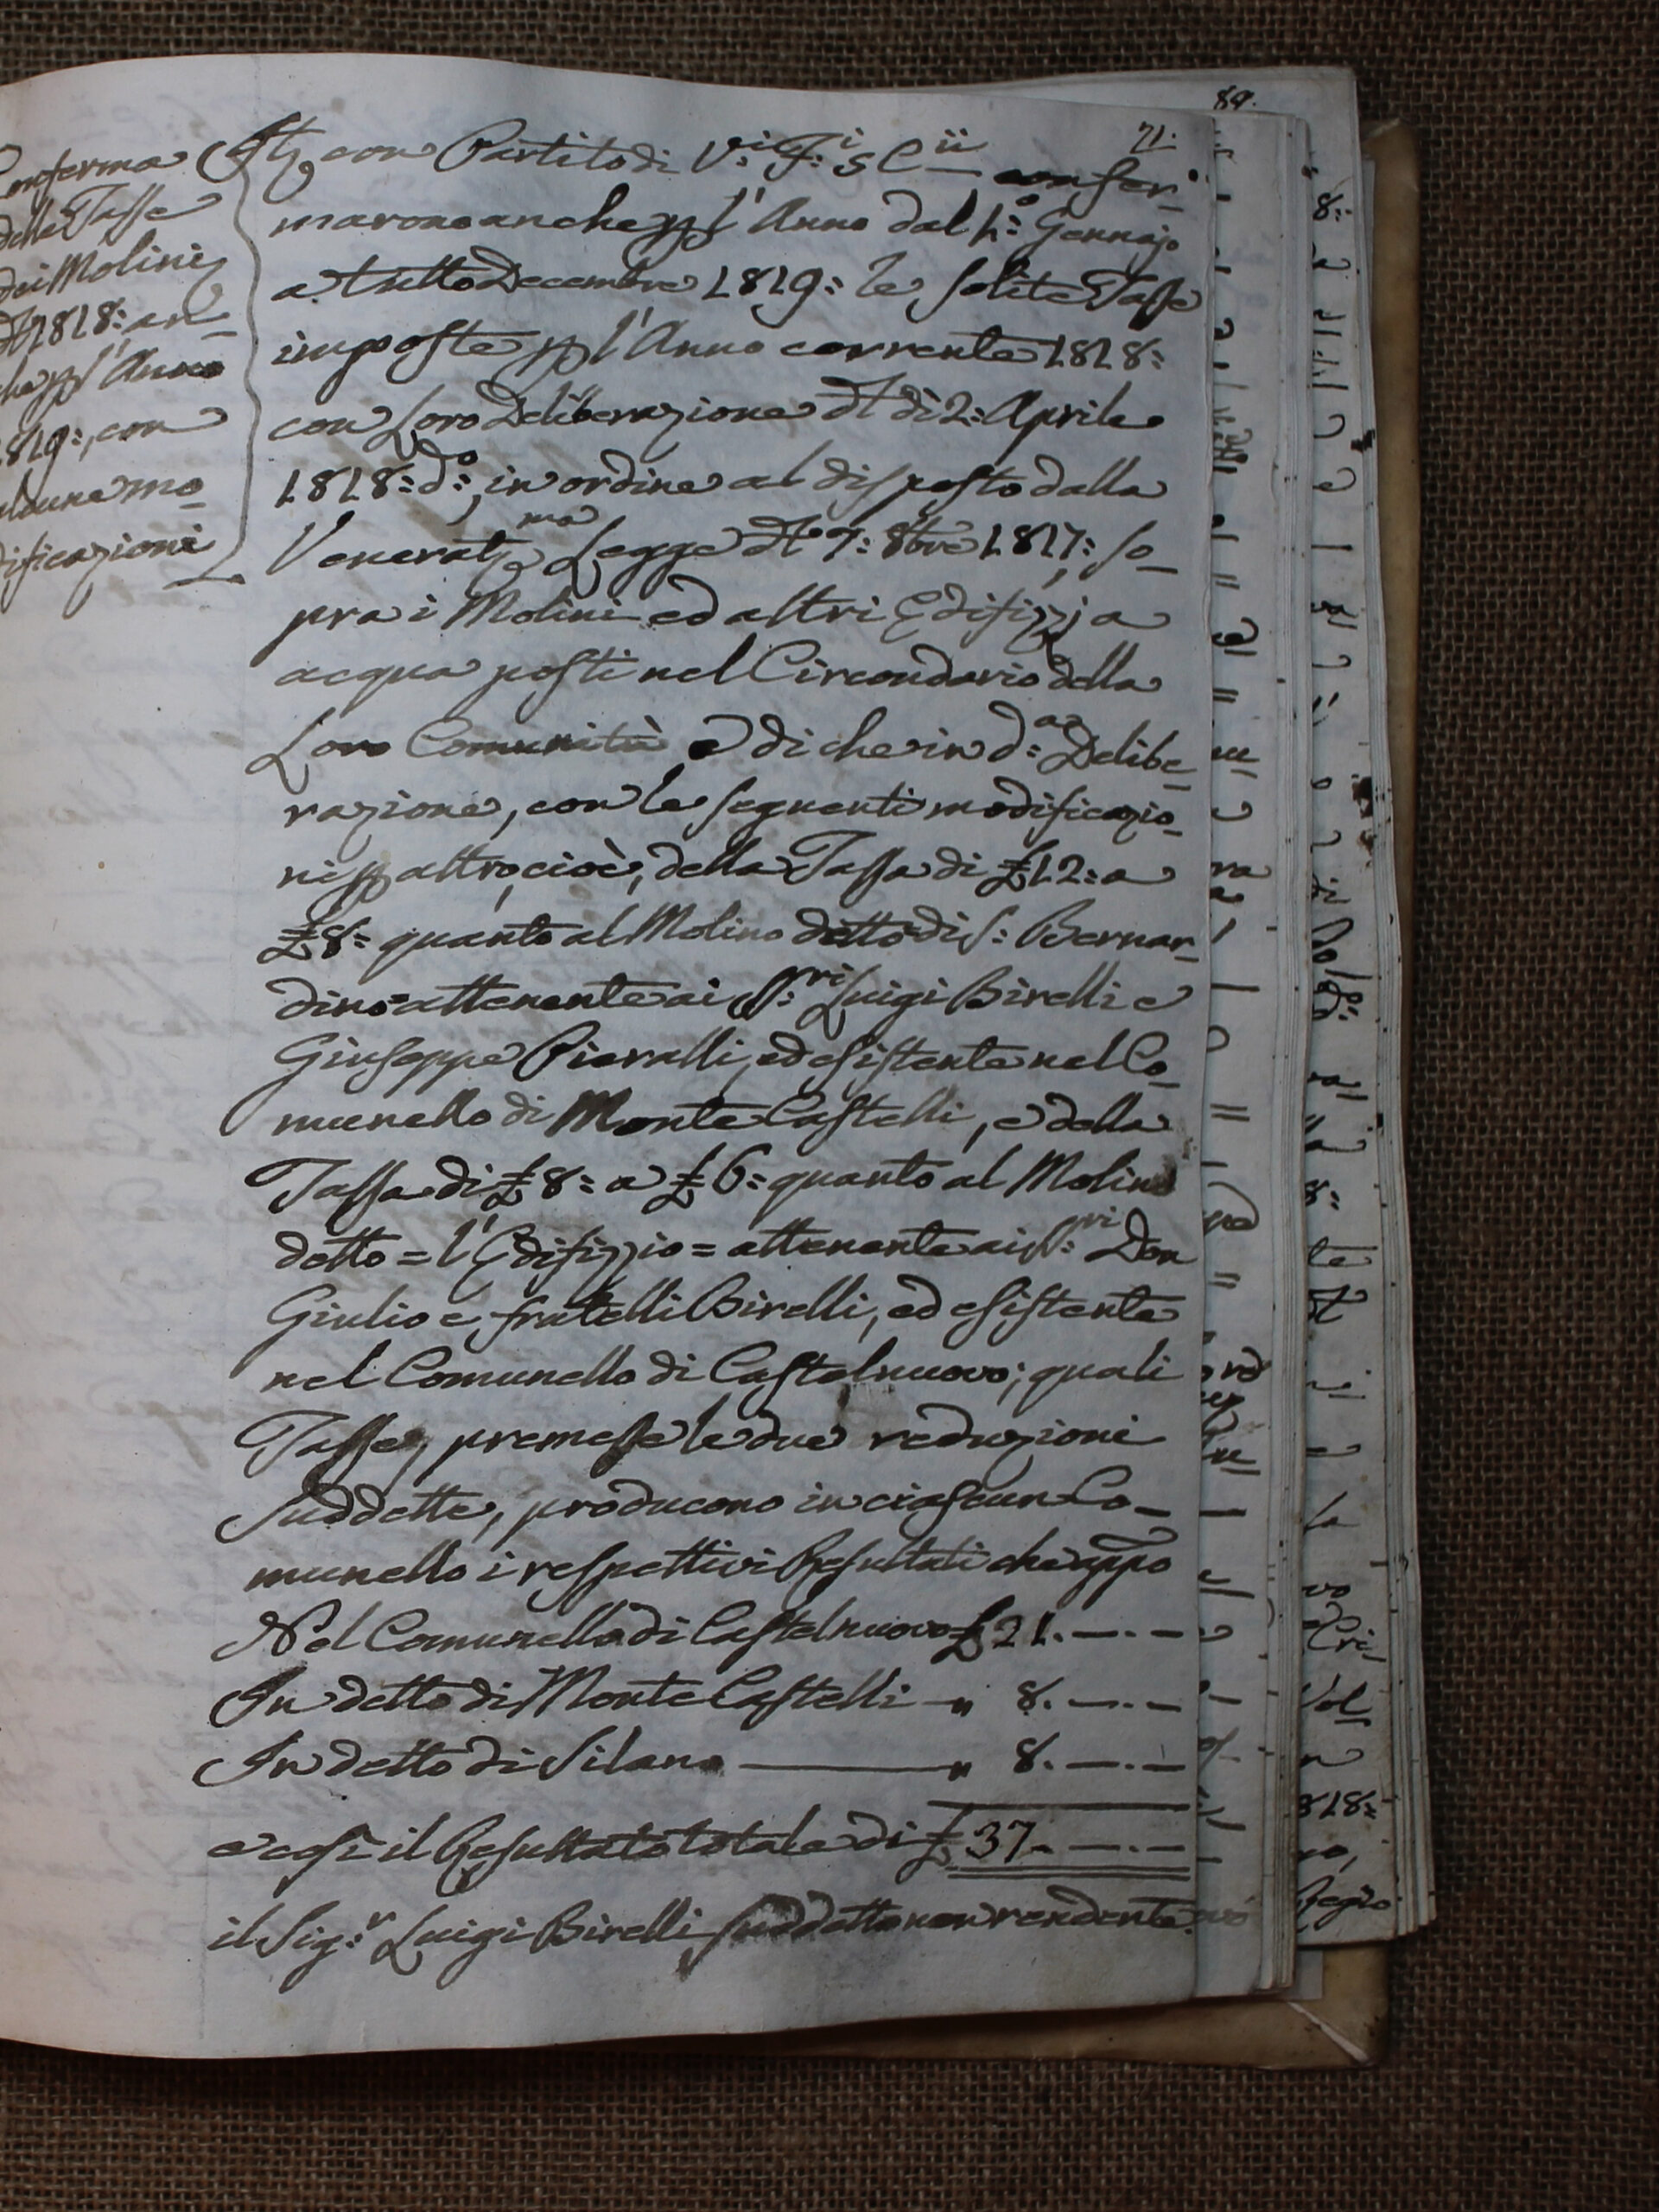 71.
Conferma
delle Tasse
dei Molini
dt 1818: an-
che p l'Anno
1819:, con
alcune mo-
dificazioni
Ite con Partito di V:i F:i s C ii confer-
marono anche p l'Anno dal p:o Gennajo
a tutto Decembre 1819: le solite Tasse
imposte p l'Anno corrente 1818:
con Loro Deliberazione dt dì 2: Aprile
1818: d:o, in ordine al disposto dalla
Venerat ma Legge dt 7: 8bre 1817:, so-
pra i Molini ed altri Edifizzj a
acqua posti nel Circondario della
Loro Comunità, e di che in d:a Delibe-
razione, con le seguenti modificazio-
ni p altro, cioè, della Tassa di £ 12: a
£ 8: quanto al Molino detto di S: Bernar-
dino = attenente ai S:ri Luigi Birelli e
Giuseppe Pieralli, ed esistente nel Co-
munello di Monte Castelli, e della
Tassa di £ 8: a £ 6: quanto al Molino
detto = l'Edifizzio = attenente ai S:ri Don
Giulio e fratelli Birelli, ed esistente
nel Comunello di Castelnuovo; quali
Tasse, premesse le due reduzioni
Suddette, producono in ciascun Co-
munello i respettivi Resultati che appo
Nel Comunello di Castelnuovo £ 21. — . —
In detto di Monte Castelli — " 8. — . —
In detto di Silano — " 8. — . —
e così il Resultato totale di £ 37. — . —
il Sig:r Luigi Birelli suddetto non rendente
89.